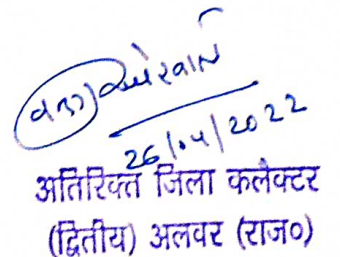 26/04/2022
अतिरिक्त जिला कलैक्टर
(द्वितीय) अलवर (राज०)